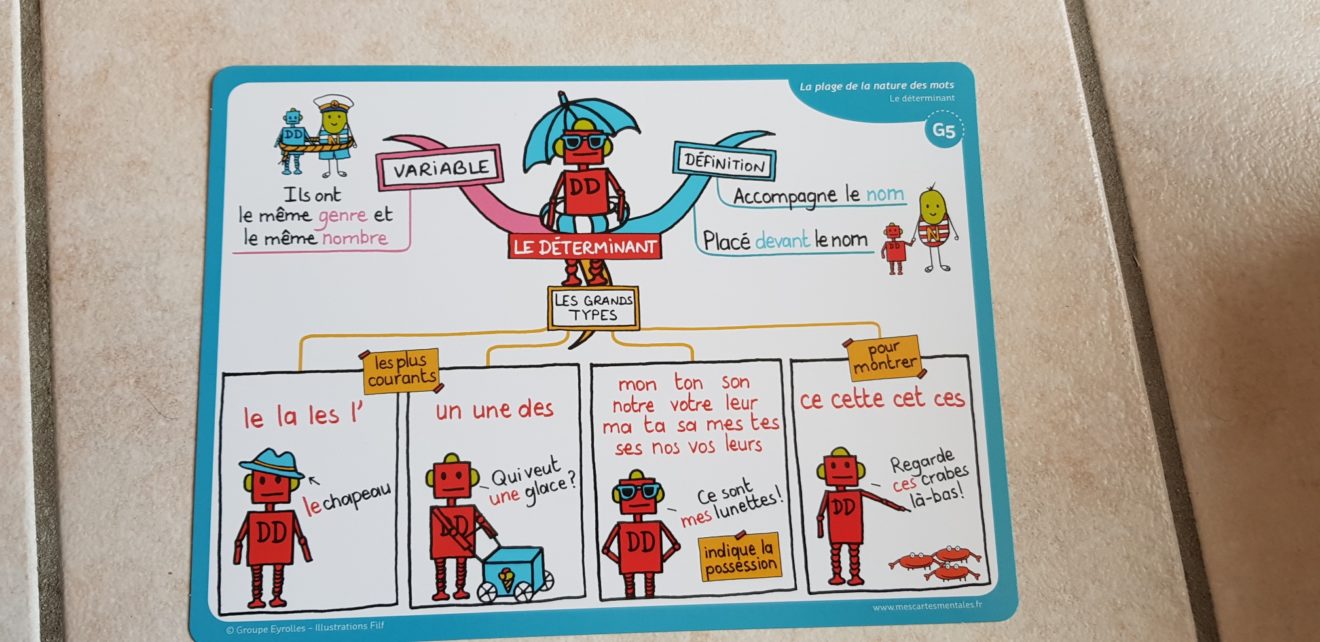 La plage de la nature des mots
Le déterminant
G5
DD
N
Ils ont
le même genre et
le même nombre
VARIABLE
DD
LE DÉTERMINANT
DÉFINITION
Accompagne le nom
Placé devant le nom
DD
N
LES GRANDS
TYPES
les plus
courants
le la les l'
le chapeau
DD
un une des
Qui veut
une glace?
DD
mon ton son
notre votre leur
ma ta sa mes tes
ses nos vos leurs
Ce sont
mes lunettes!
DD
indique la
possession
pour
montrer
ce cette cet ces
Regarde
ces crabes
là-bas!
DD
© Groupe Eyrolles – Illustrations Filf
www.mescartesmentales.fr